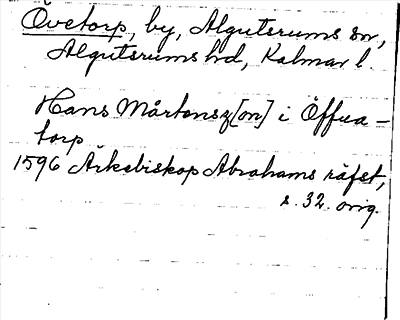 Övetorp, by, Algutsrums sn,
Algutsrums hd, Kalmar l.
Hans Mårtensz[on] i Öffua-
torp
1596 Ärkebiskop Abrahams räfst,
s. 32. orig.